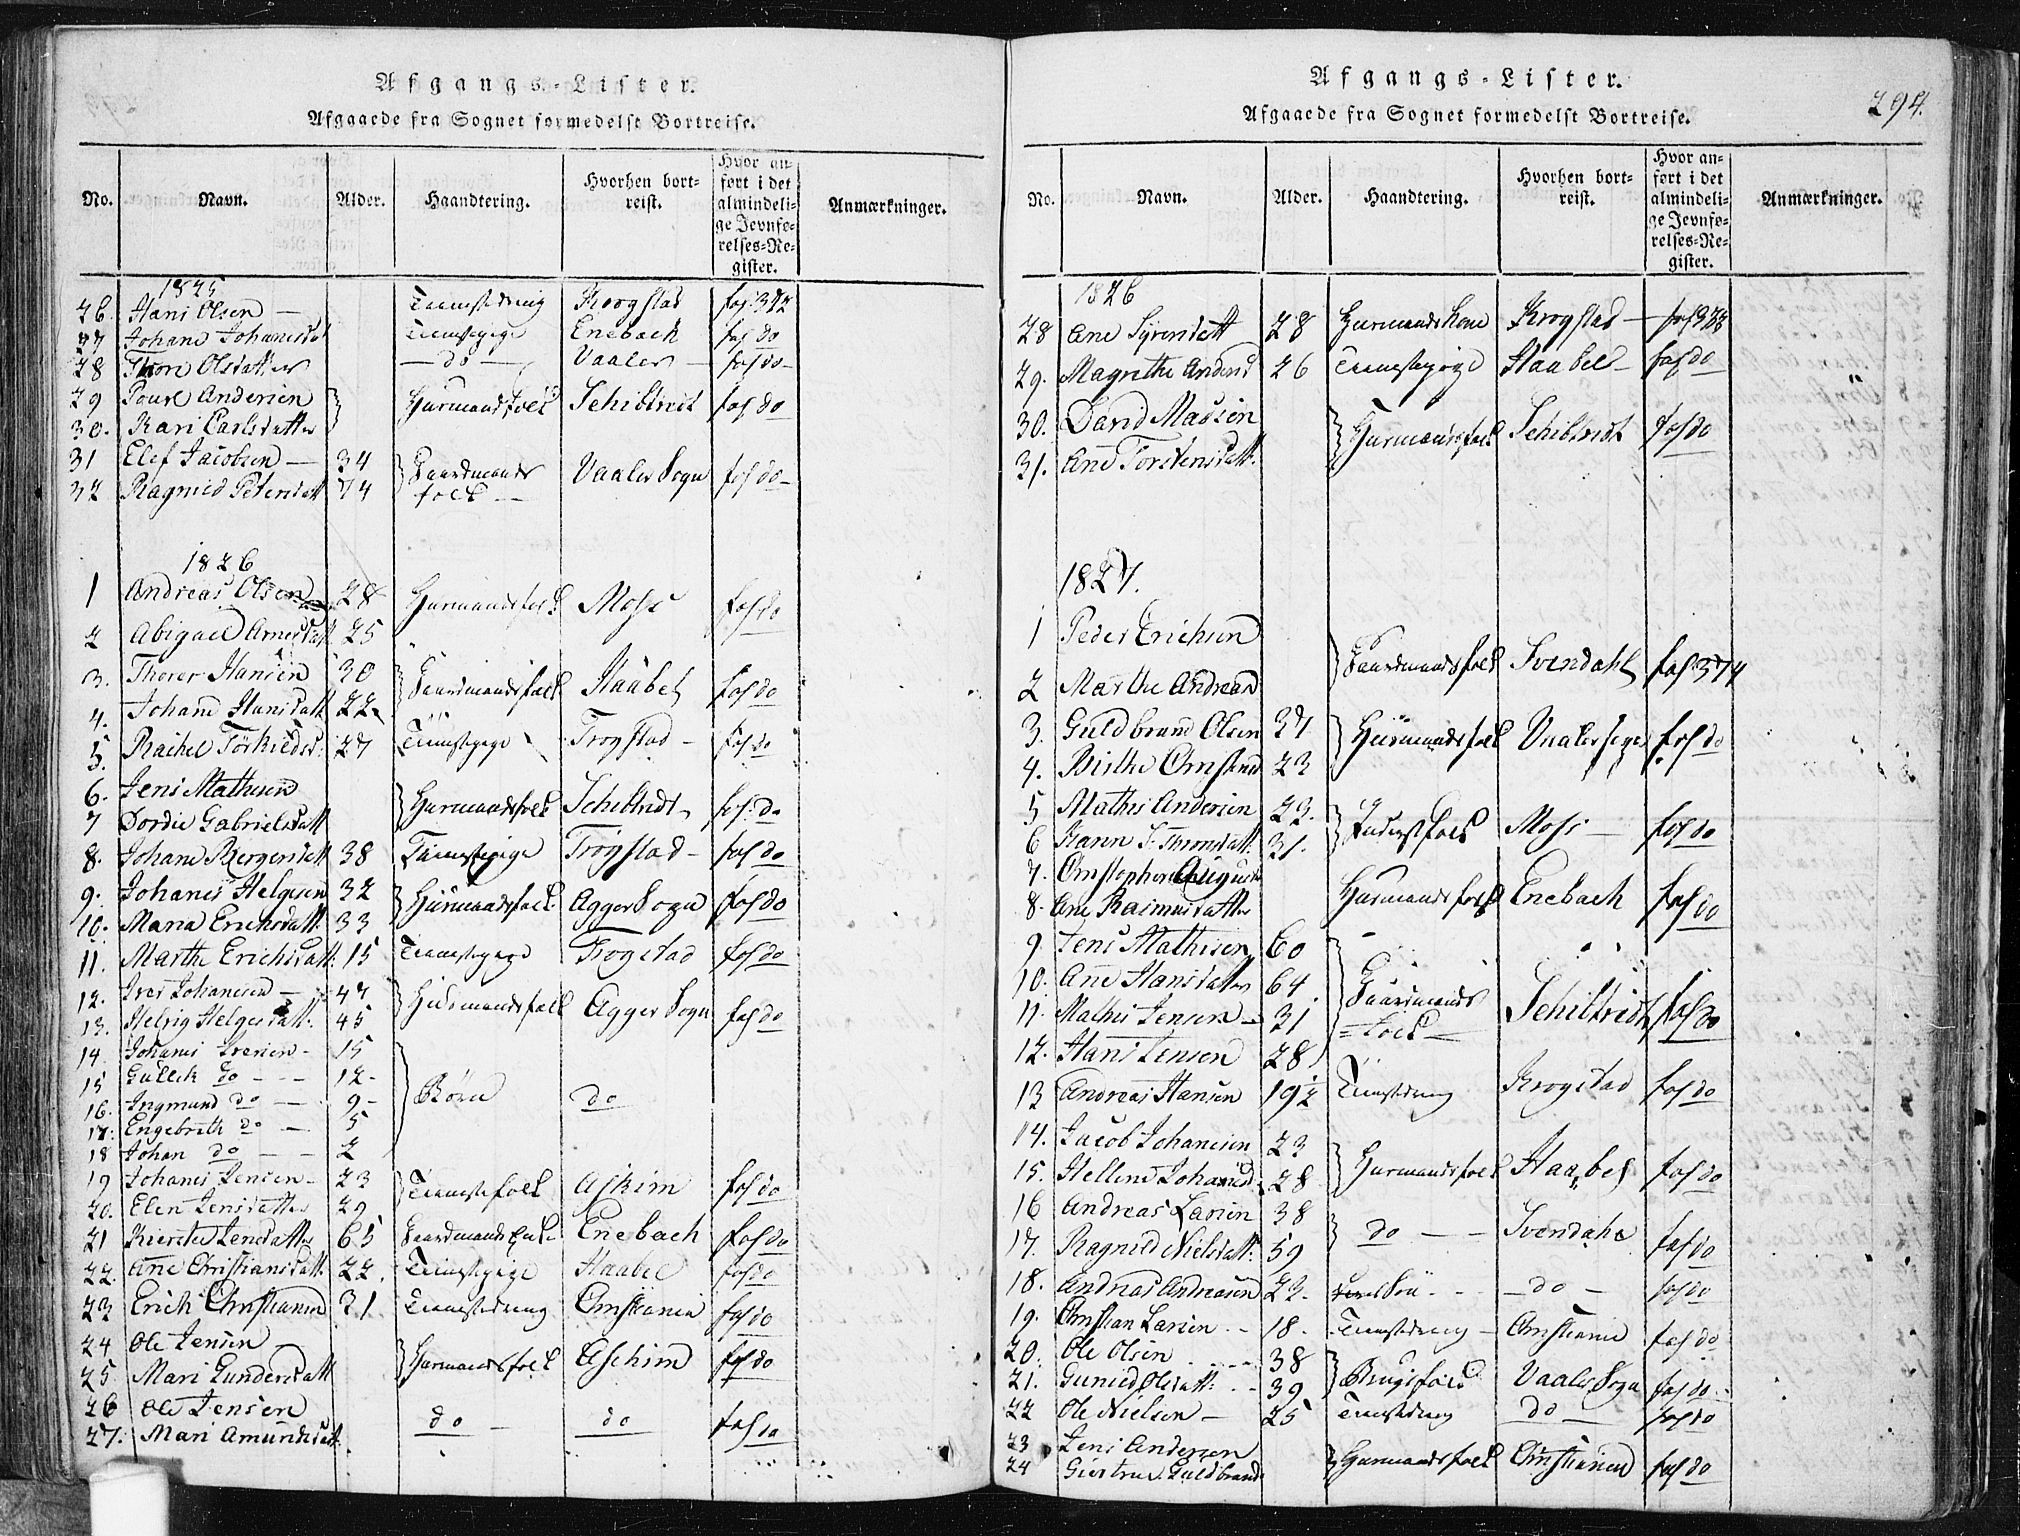 Afgangs-Lister.
Afgaaede fra Sognet formedelst Bortreise.
No. Navn. Alder. Haandtering. Hvorhen bortreist. Hvor anført i det almindelige Jevnførelses-Register. Anmærkninger.
1825
26. Hans Olsen — Tienestedreng Krogstad fol: 372
27 Johane Johanisdat Tienestepige Enebach fol do
28 Olsdatter — do — Vaaler — fol do
29 Poul Andersen } Huusmandsfolk Schibtvedt fol do
30. Kari Carlsdatter
31 Elef Jacobsen — 34 } Gaardmands folk — Vaaler Sogn fol do
32 Ragnild Petersdatt 74
1826
1 Andreas Olsen 28 Huusmandsfolk Moss fol do
2 Abigael Arnesdatt 25
3. Thorer Hansen 30 } Gaardmandsfolk Haabel fol do
4. Johane Hansdatt 22
5. Rachel Torkildsd: 27 Tienestepige Trogstad — fol do
6. Jens Mathisen } Huusmandsfolk Schibtvedt fol: do
7 Dordie Gabrielsdatt
8. Johane Børgersdatt 38 Tienestepige Trogstad — fol do
9. Johanes Helgesen 32 } Huusmandsfolk Agger Sogn fol do
10. Maria Erichsdatt: 33
11. Marthe Erichsdatt: 15 Tienestepige Trogstad fol do
12. Iver Johanesen — 47 } Huusmandsfolk Agger Sogn fol do
13. Helvig Helgesdatt: 45
14. Johanes Iversen — 15 } Børn do
15 Gullick do — — 12 —
16. Ingmund do — 9 —
17: Engebreth do — 5
18 Johan do — — 2
19 Johanes Jensen — 23 } Tienestefolk Askim fol do
20. Elen Jensdatter 29
21 Kierste Jensdatter 65 Gaardmands Enke Enebach fol do
22. Ane Christiansdatt: 22. Tienestepige Haabel fol do
23 Erich Christiansen 31. Tienestedreng Christiania fol do
24 Ole Jensen — } Huusmandsfolk Aschim fol do
25. Mari Gundersdatt
26 Ole Jensen do — do fol do
27. Mari Amundsdat
Afgangs-Lister.
Afgaaede fra Sognet formedelst Bortreise.
294.
No. Navn. Alder. Haandtering. Hvorhen bortreist. Hvor anført i det almindelige Jevnførelses-Register. Anmærkninger.
1826
28 Ane Syversdatt 28 Huusmandskone Krogstad — fol 373
29. Magrethe Andersd 26 Tienestepige Haabel — fol do
30. David Madsen } Huusmandsfolk Schibtvedt fol do
31. Ane Torstensdatt.
1827.
1 Peder Erichsen } Gaardmandsfolk Svendahl fol 374
2 Marthe Andreasd
3. Guldbrand Olsen 37 } Huusmandsfolk Vaaler fol do
4. Birthe Christensd 23
5 Mathis Andersen 23. } Inderstfolk Moss — fol do
6 Karen 31.
7. Christopher August Huusmandsfolk Enebach fol do
8. Ane Rasmusdatter
9. Jens Mathisen 60 } Gaardmands = folk — Schibtvedt fol do
10. Ane Hansdatter 64
11. Mathis Jensen — 31
12. Hans Jensen 28
13 Andreas Hansen 19½ Tienestedreng Krogstad fol do
14. Jacob Johanesen 23 } Huusmandsfolk Haabel fol do
15. Hellene Johanisd 28
16 Andreas Larsen 38 } do — — Svendahl fol do
17. Ragnild Nielsdatt: 59
18. Andreas Andreasen 22. Søn — do — fol do
19. Christian Larsen — 18. Tienestedreng — Christiania fol do
20. Ole Olsen — 38 } Brugsfolk Vaaler Sogn fol do
21. Gunild Olsdatt: — 39
22 Ole Nielsen — 25 Tienestedreng do — fol do
23 Jens Andersen } Huusmandsfolk Christiania fol do
24 Giertrud Guldbrands